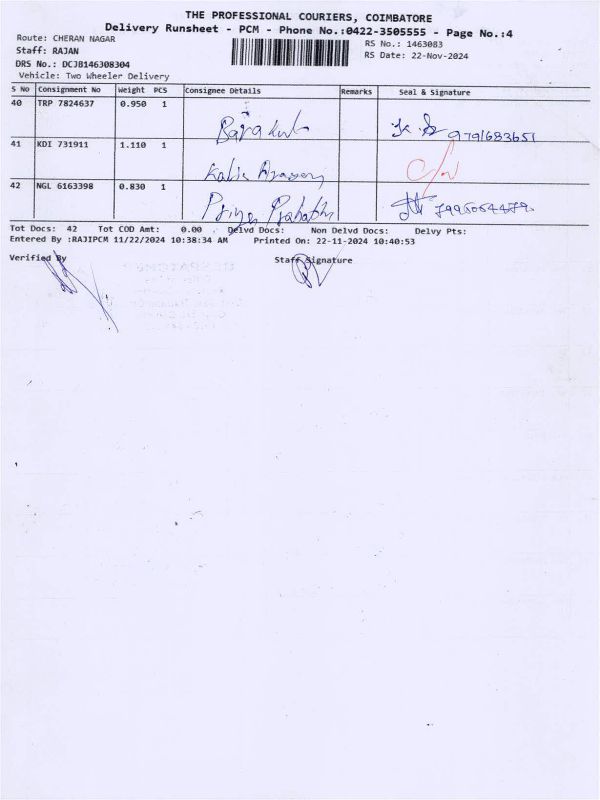 THE PROFESSIONAL COURIERS, COIMBATORE
Delivery Runsheet - PCM - Phone No.:0422-3505555 - Page No.:4
Route: CHERAN NAGAR
RS No.: 1463083
Staff: RAJAN
RS Date: 22-Nov-2024
DRS No.: DCJB146308304
Vehicle: Two Wheeler Delivery
S No Consignment No Weight PCS Consignee Details Remarks Seal & Signature
40 TRP 7824637 0.950 1
9791683651
41 KDI 731911 1.110 1
42 NGL 6163398 0.830 1
Priya
Tot Docs: 42 Tot COD Amt: 0.00 Delvd Docs: Non Delvd Docs: Delvy Pts:
Entered By :RAJIPCM 11/22/2024 10:38:34 AM Printed On: 22-11-2024 10:40:53
Verified By Staff Signature